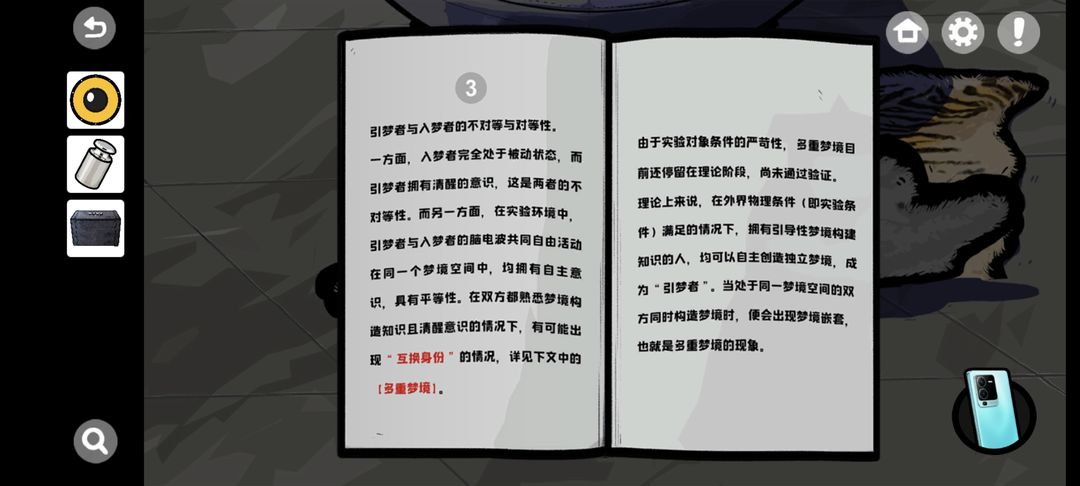 3
引梦者与入梦者的不对等与对等性。
一方面，入梦者完全处于被动状态，而
引梦者拥有清醒的意识，这是两者的不
对等性。而另一方面，在实验环境中，
引梦者与入梦者的脑电波共同自由活动
在同一个梦境空间中，均拥有自主意
识，具有平等性。在双方都熟悉梦境构
造知识且清醒意识的情况下，有可能出
现“互换身份”的情况，详见下文中的
【多重梦境】。
由于实验对象条件的严苛性，多重梦境目
前还停留在理论阶段，尚未通过验证。
理论上来说，在外界物理条件（即实验条
件）满足的情况下，拥有引导性梦境构建
知识的人，均可以自主创造独立梦境，成
为“引梦者”。当处于同一梦境空间的双
方同时构造梦境时，便会出现梦境嵌套，
也就是多重梦境的现象。